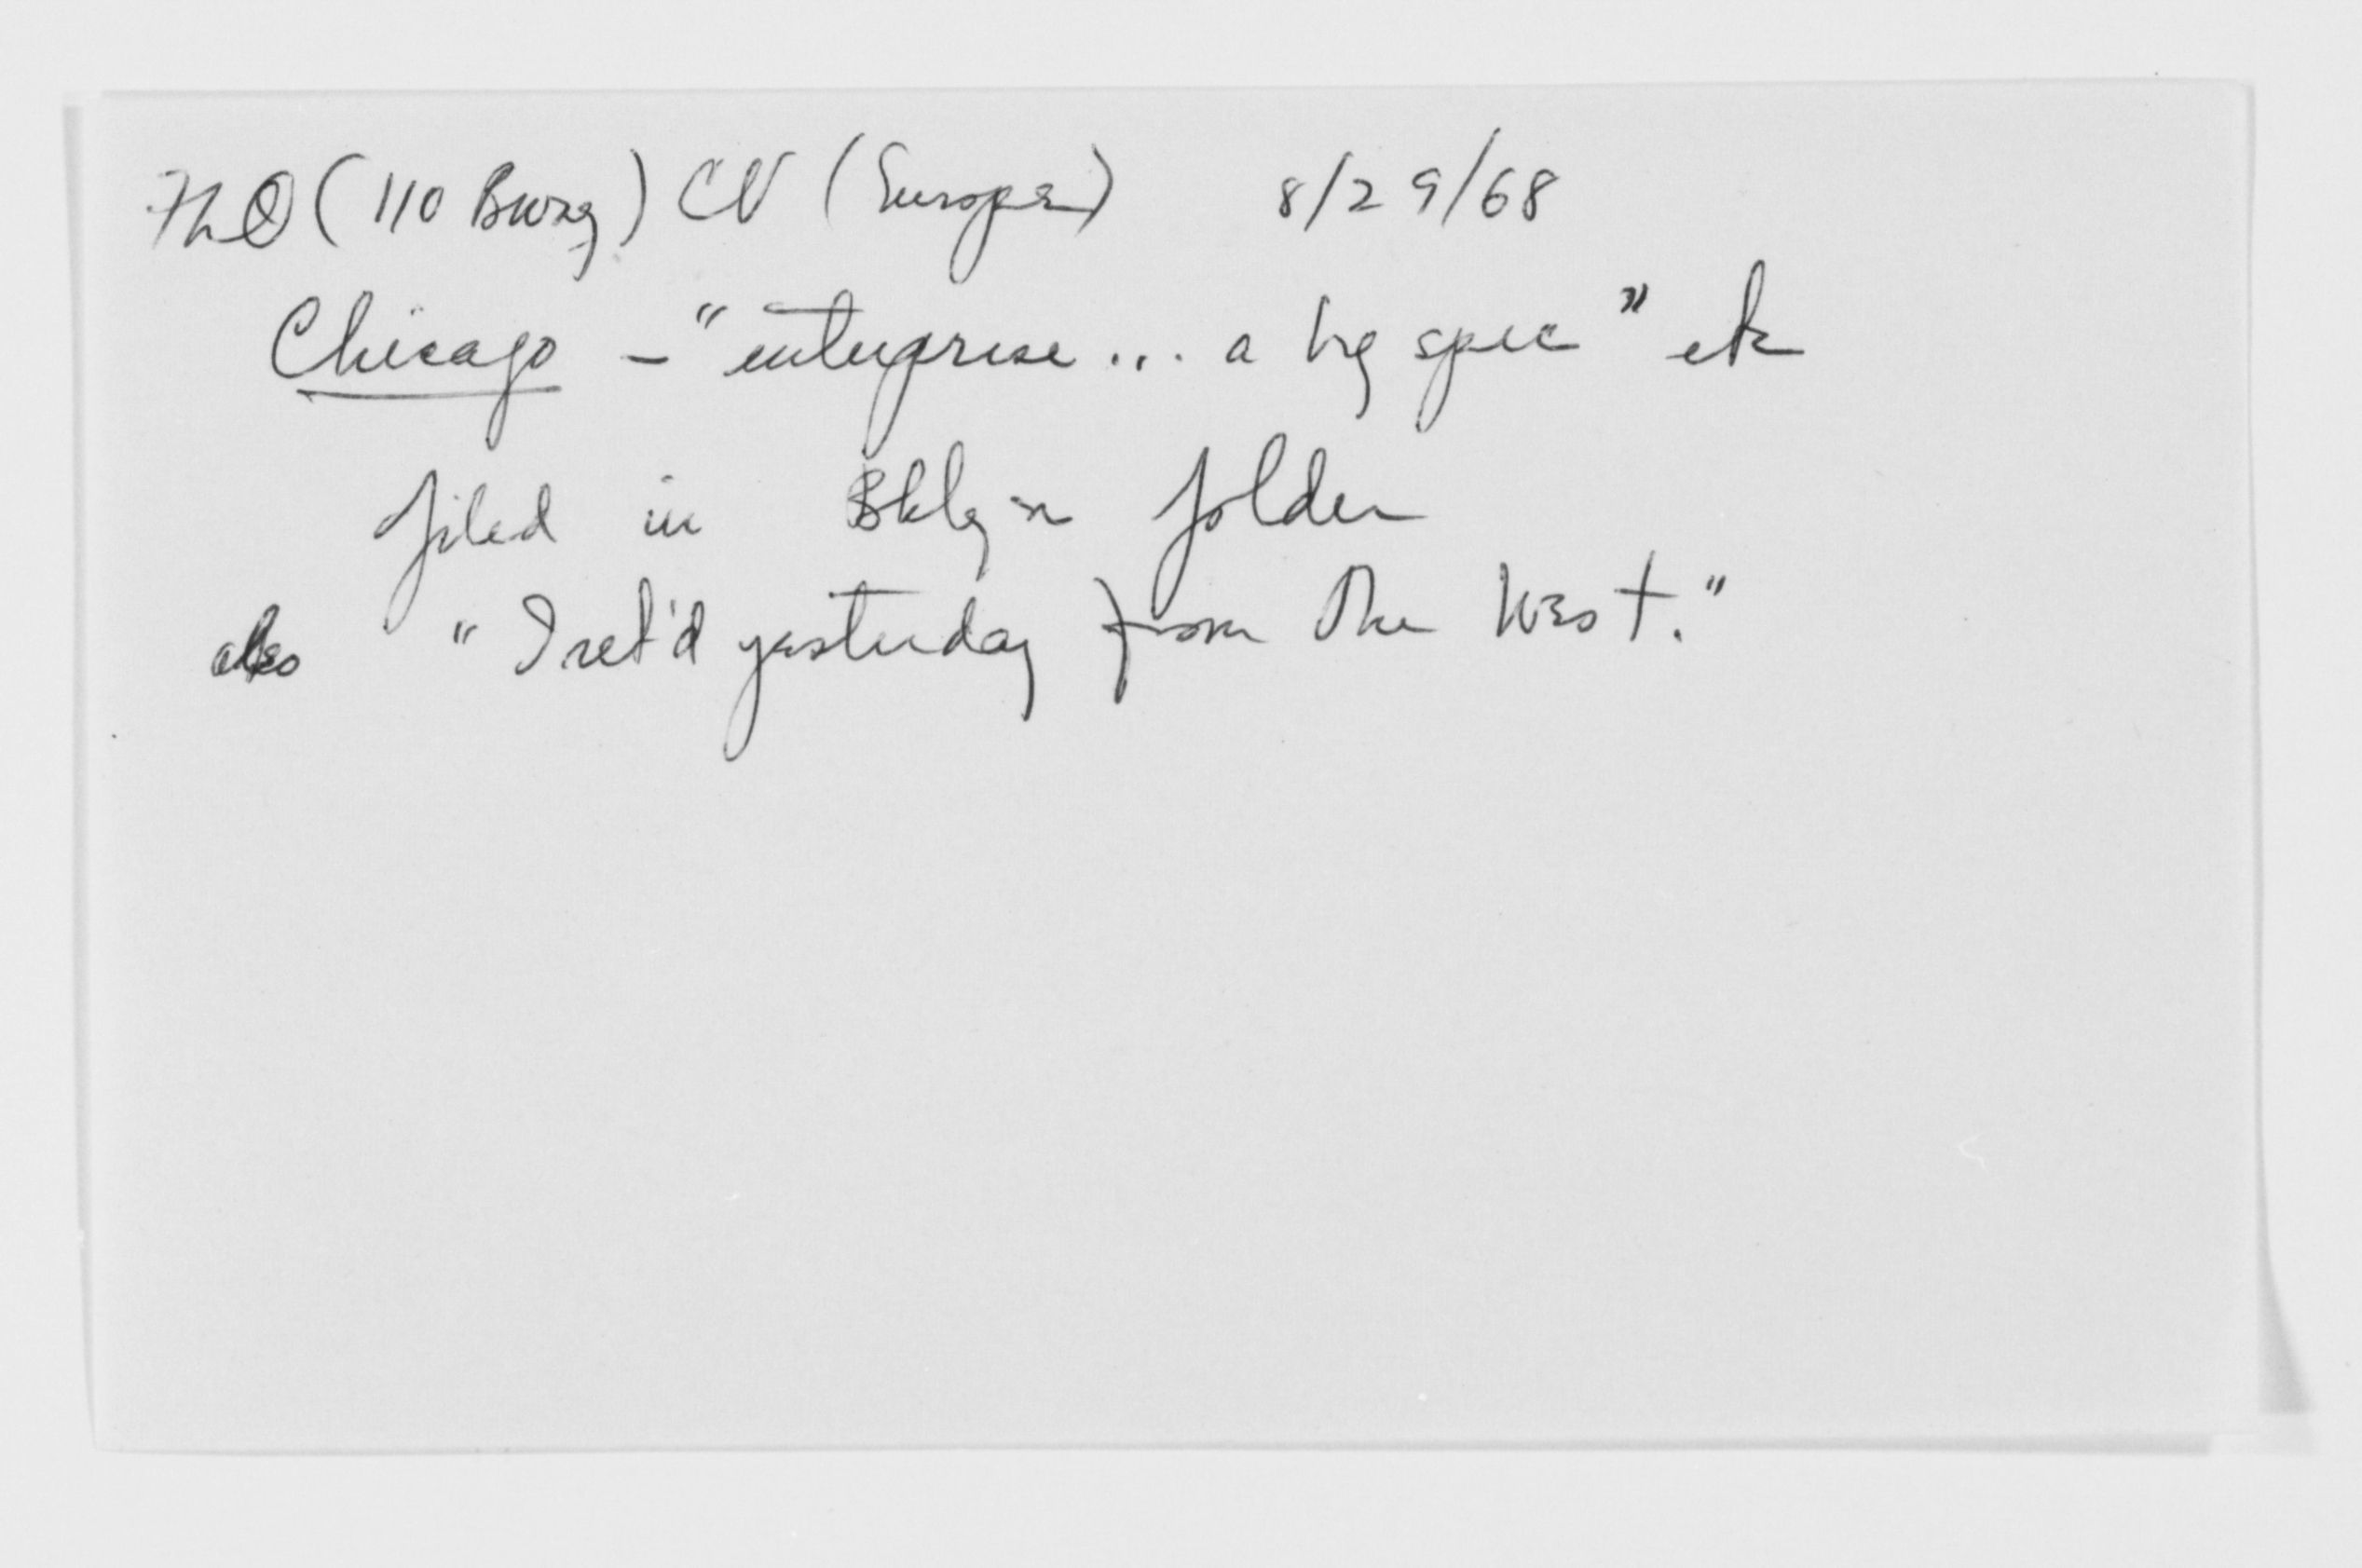 FLO (110 Bway) CV (Europe) 8/29/68
Chicago - "enterprise ... a big spec" etc
filed in Bklyn folder
also "I ret'd yesterday from the West."